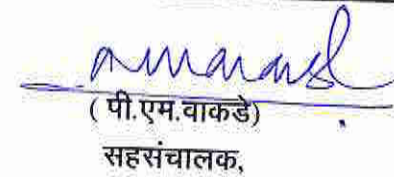 ( पी.एम.वाकडे)
सहसंचालक,